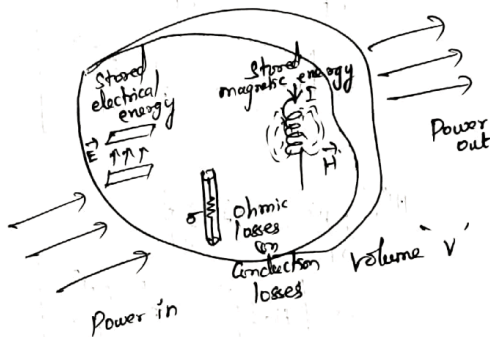 Stored
electrical
energy
E
Stored
magnetic energy
I
H
Power
out
σ
Ohmic
losses
or
Conduction
losses
Volume "V"
Power in